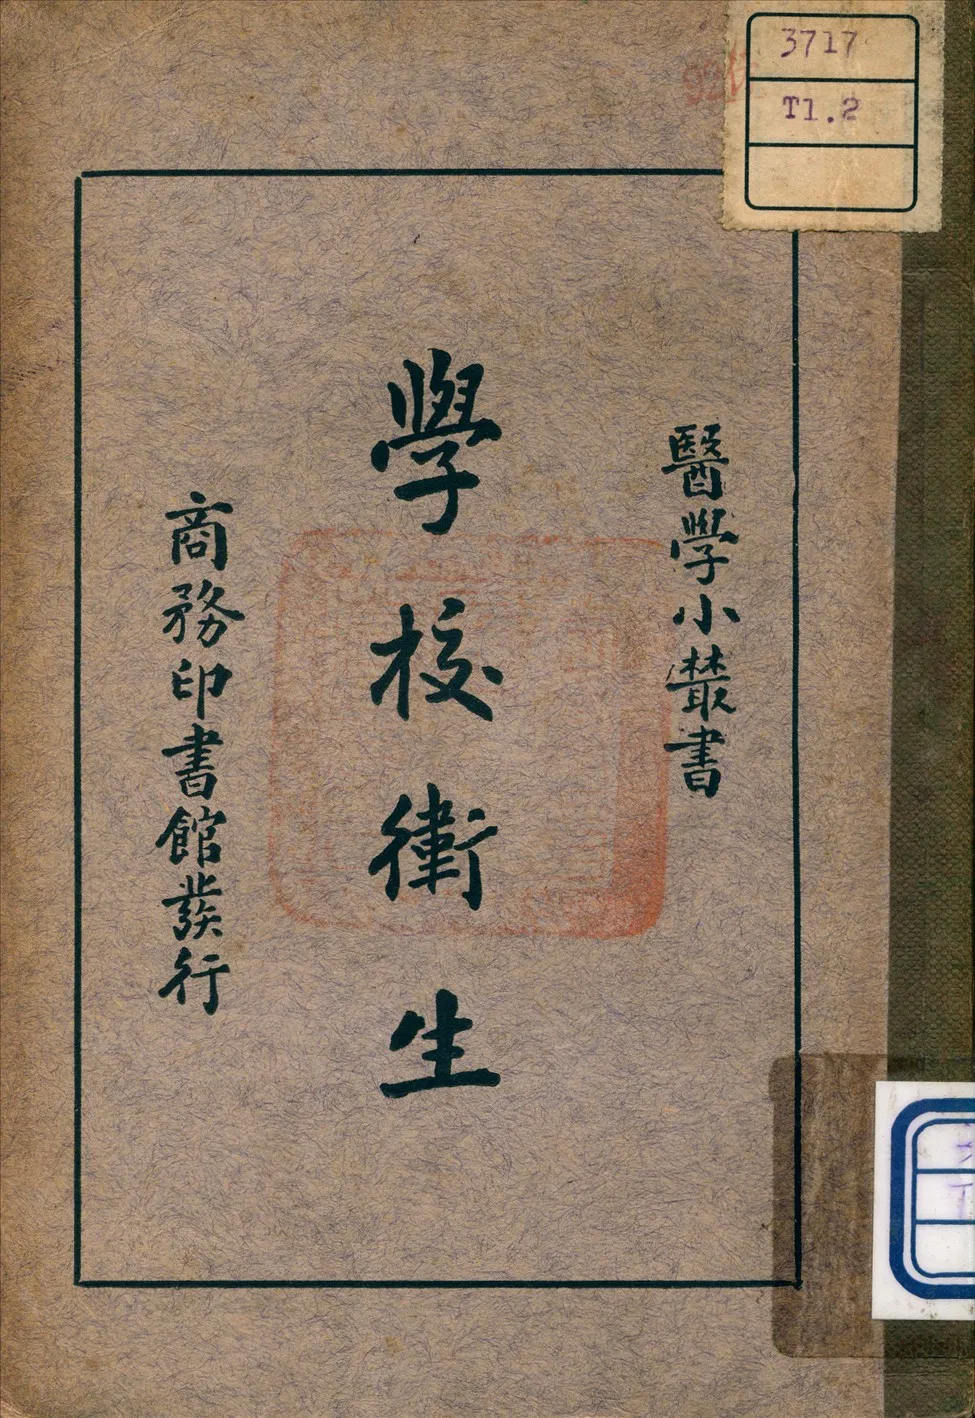 3717
T1.2
醫學小叢書
學校衛生
商務印書館發行